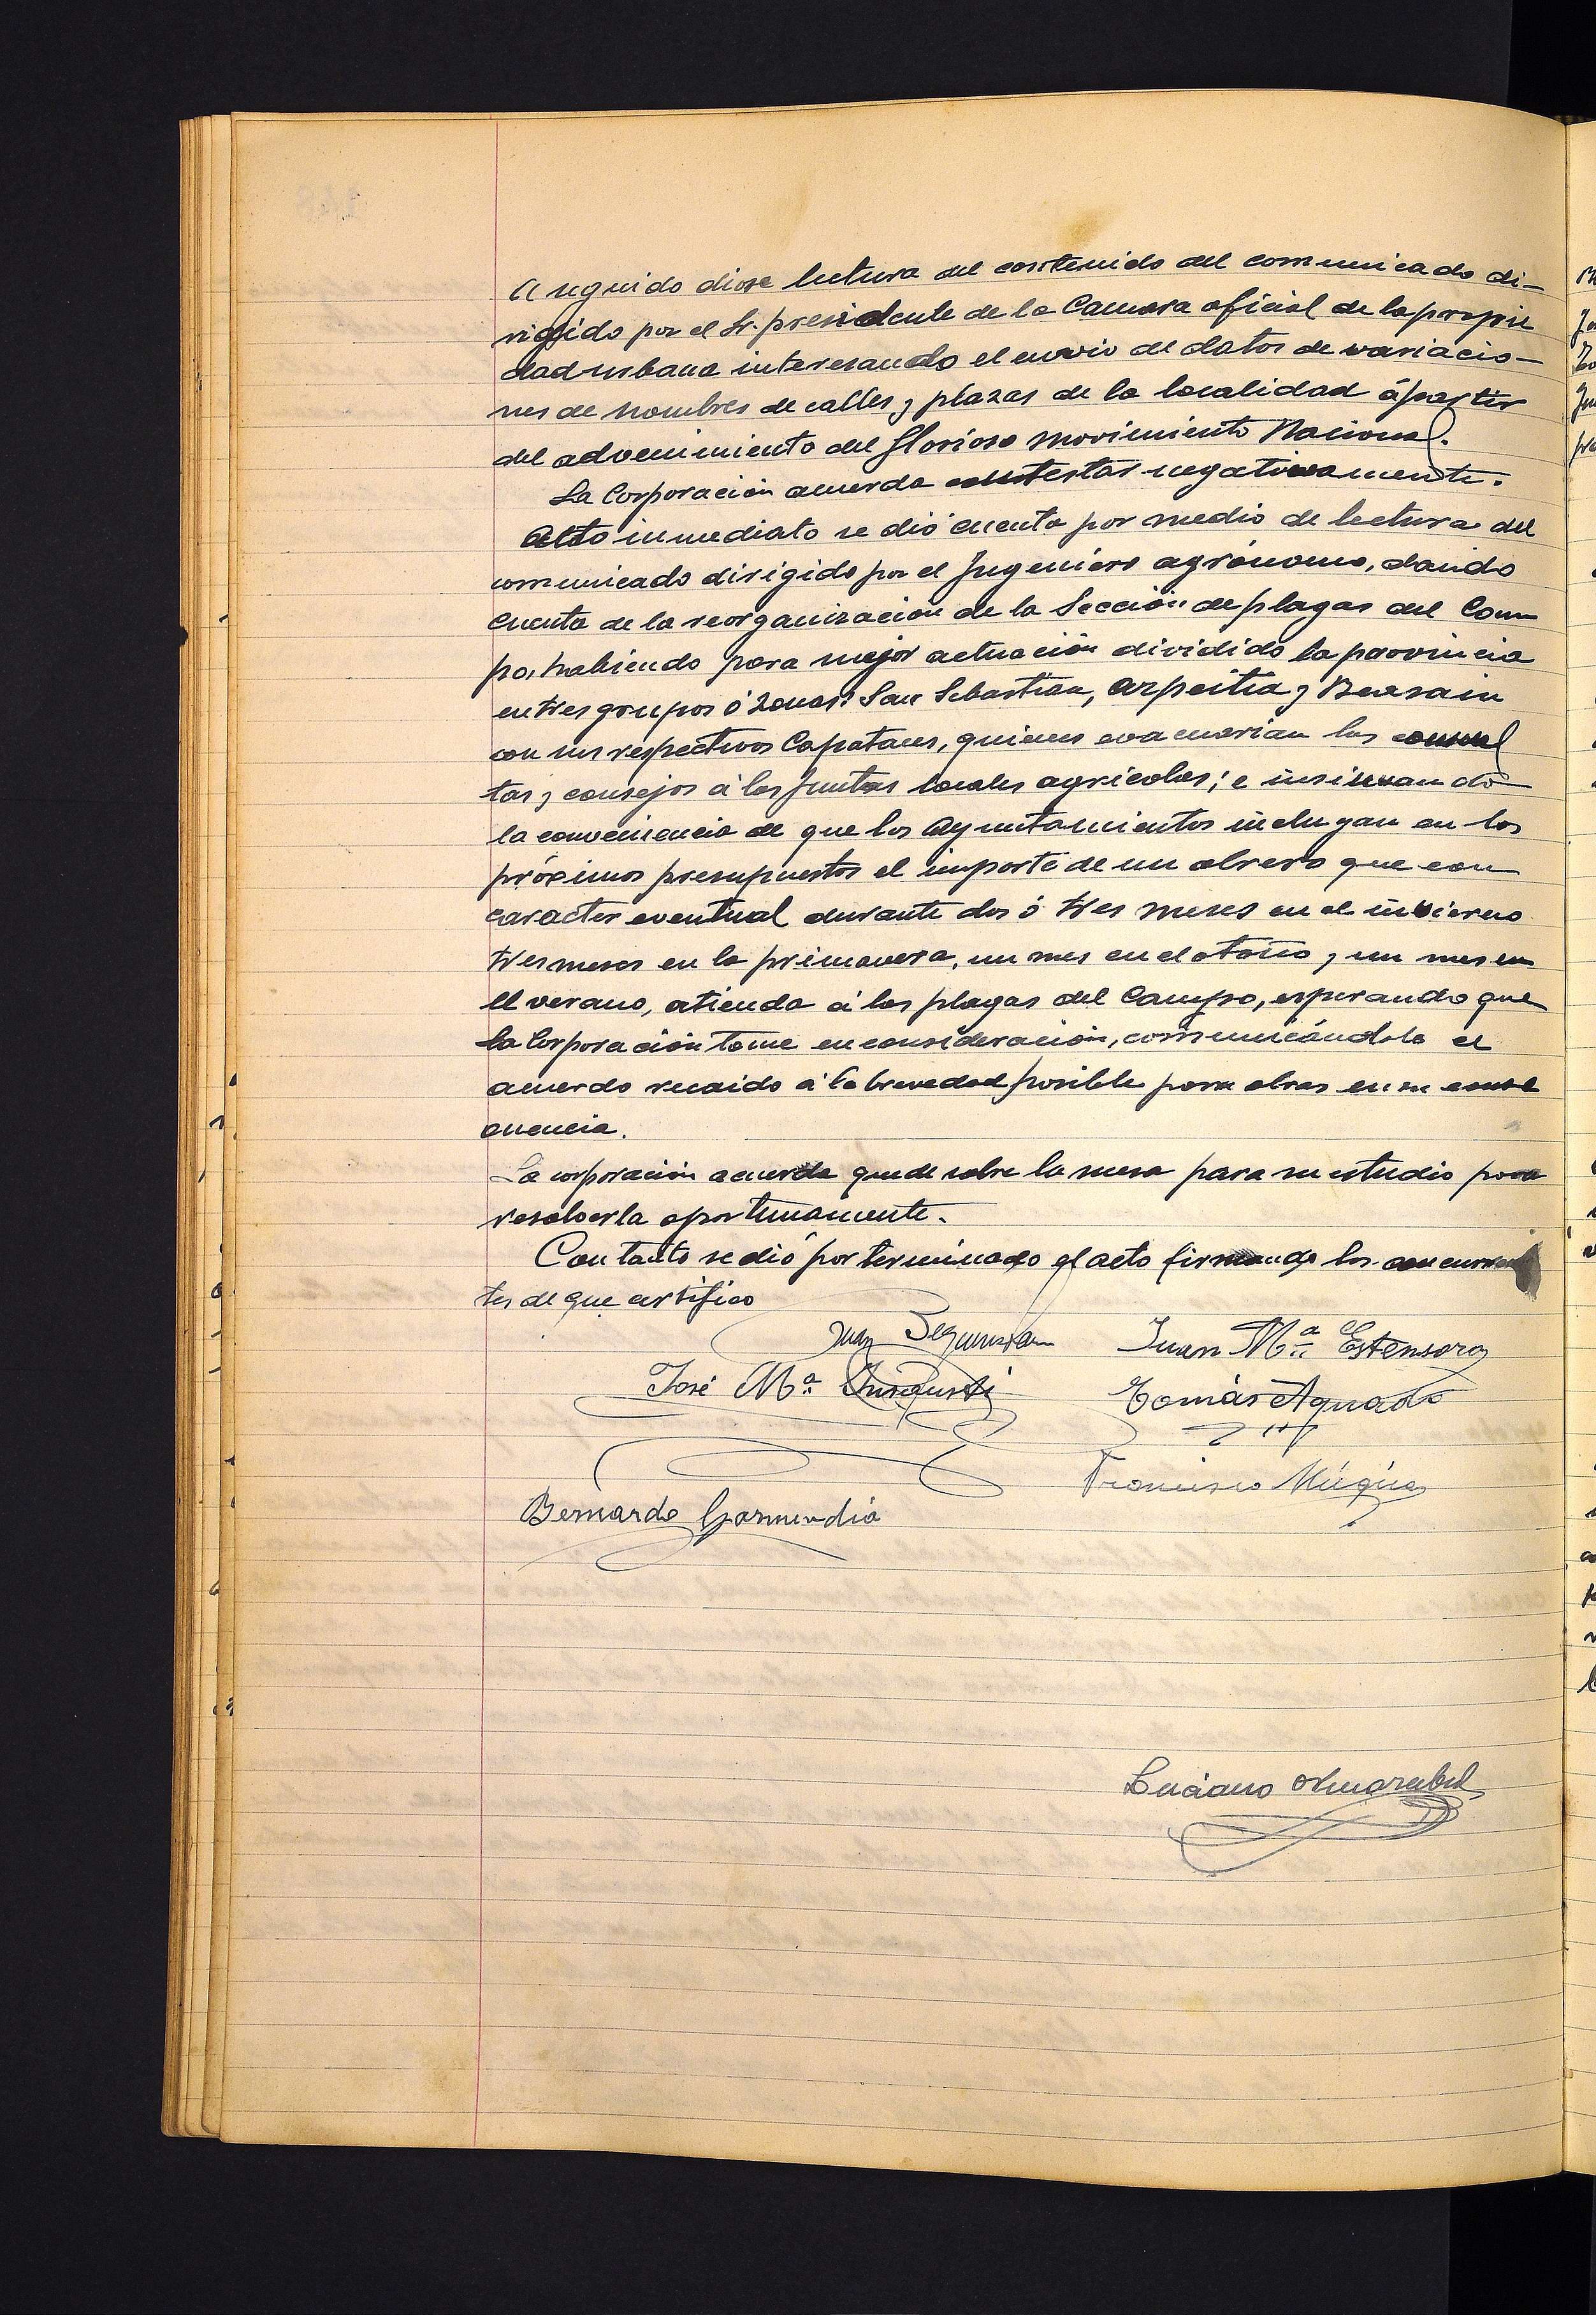 A seguido diose lectura del contenido del comunicado di-
rigido por el Sr. presidente de la Camara oficial de la propie
dad urbana interesando el envio de datos de variacio-
nes de nombres de calles y plazas de la localidad á partir
del advenimiento del Glorioso movimiento Nacional.
La Corporación acuerda contestar negativamente.
Acto inmediato se dió cuenta por medio de lectura del
comunicado dirigido por el Ingeniero agrónomo, dando
cuenta de la reorganizacion de la Sección de plagas del Cam
po, habiendo para mejor actuación dividido la provincia
en tres grupos ó zonas: San Sebastian, Azpeitia y Beasain
con sus respectivos Capataces, quienes evacuarian las consul
tas y consejos á las Juntas locales agricolas; e insinuando
la conveniencia de que los Ayuntamientos incluyan en los
próximos presupuestos el importe de un obrero que con
caracter eventual durante dos ó tres meses en el invierno
tres meses en la primavera, un mes en el otoño y un mes en
el verano, atienda á las plagas del Campo, esperando que
la Corporación tome en consideración, comunicándole el
acuerdo recaido á la brevedad posible para obrar en su conse
cuencia.
La corporación acuerda quede sobre la mesa para su estudio para
resolverla oportunamente.
Con tanto se dió por terminado el acto firmando los concurren
tes de que certifico
Juan Juan Mª Estensoro
José Mª Tomás Aguado
Francisco Múgica
Bernardo Garmendia
Luciano
148